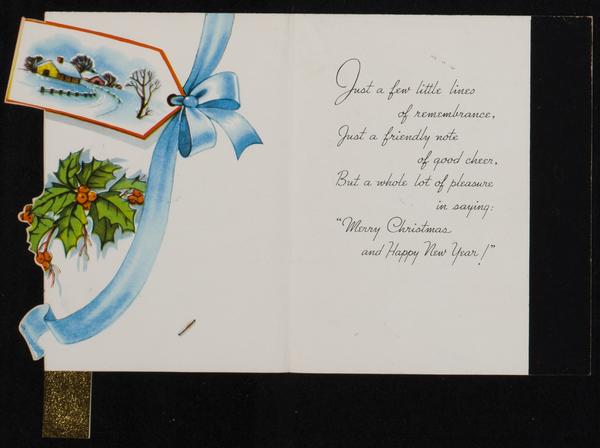 Just a few little lines
of remembrance,
Just a friendly note
of good cheer,
But a whole lot of pleasure
in saying:
"Merry Christmas
and Happy New Year!"